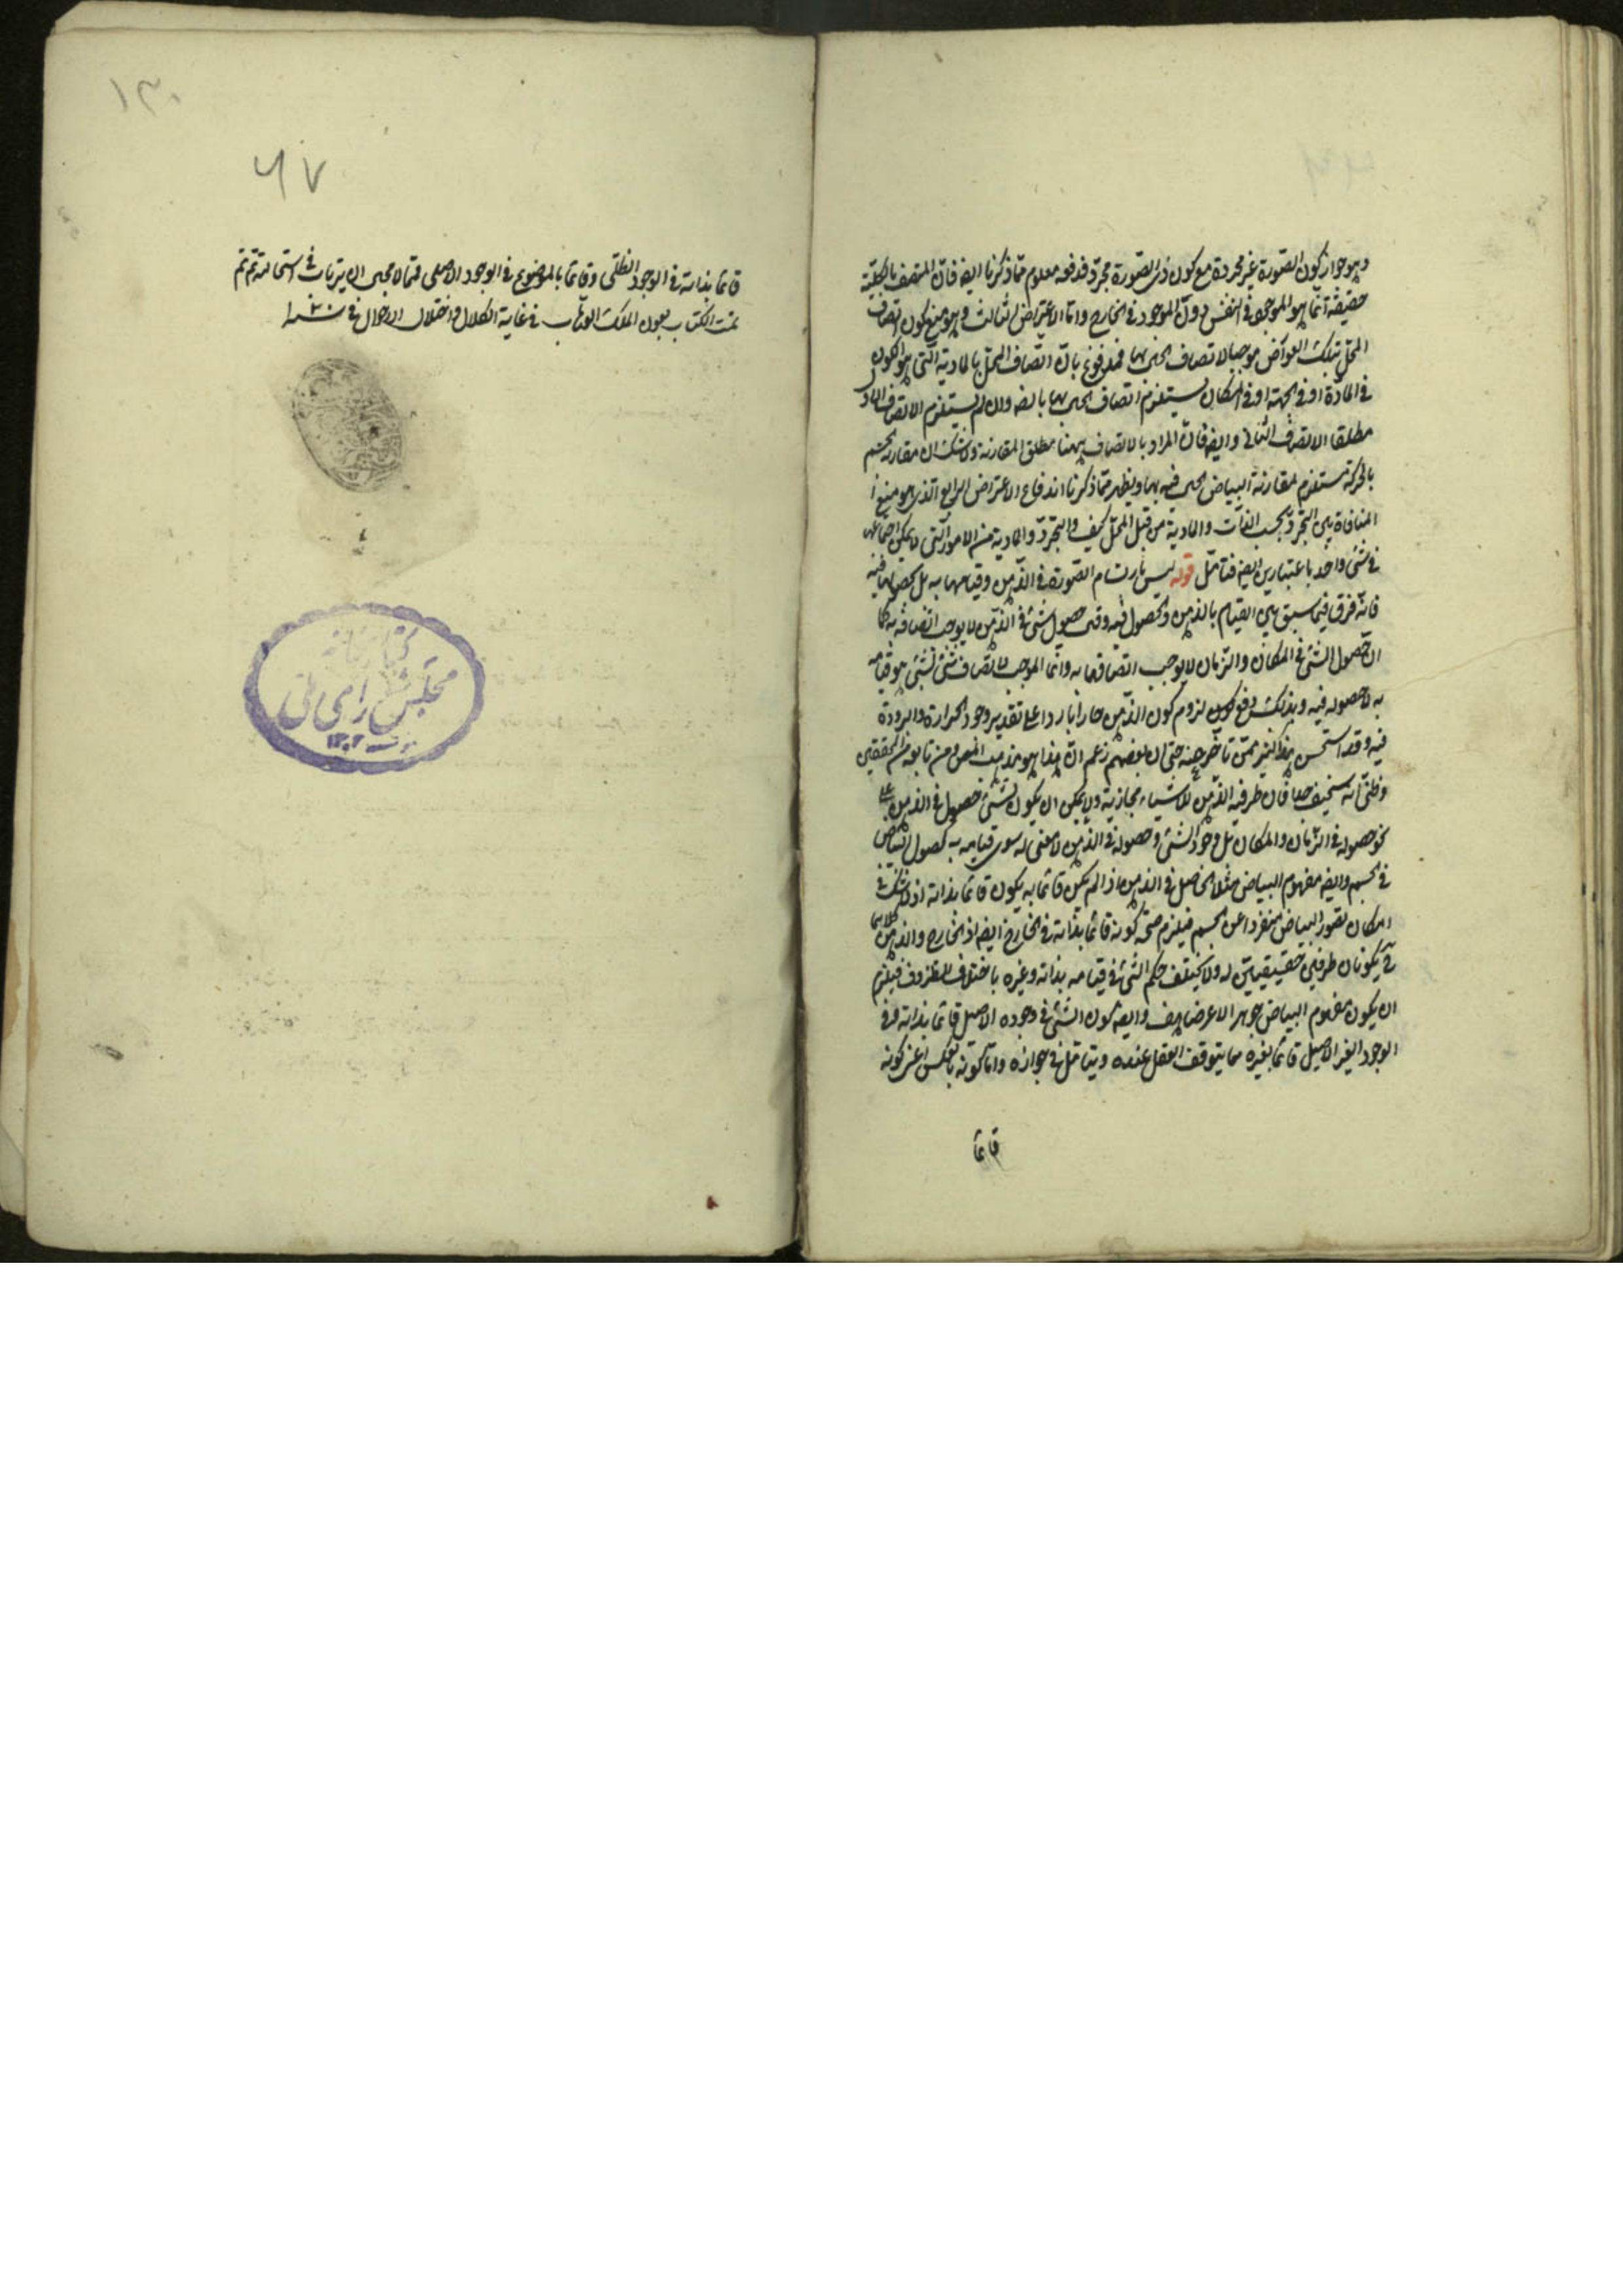 وهو جواز كون الصورة غير مجردة مع كون ذى الصورة مجرّد فدفعه معلوم ممّا ذكرنا ايضه فانّ المتصف بالكليّة
حقيقة انّما هو الموجود فى النفس دون الموجود فى الخارج وامّا الاعتراض الثالث وهو منع كون اتصاف
المحلّ بتلك العوارض موجبا لاتصاف الحال بها فمدفوع بانّ اتّصاف المحلّ بالمادية الّتى هى الكون
فى المادّة او فى الجهة او فى المكان يستلزم اتصاف الحال بها بالضه وان لم يستلزم الاتصاف
مطلقا الاتصاف الثانى وايضه فانّ المراد بالاتصاف ههنا مطلق المقارنة ولا شك ان مقارنة الجسم
بالحركة مستلزم لمقارنة البياض الحال فيه بها ويظهر ممّا ذكرنا اندفاع الاعتراض الرابع الّذى هو منع
المنافاة بين التجرّد بحسب الذّات والمادية من قبل المحلّ كيف والتجرّد والمادية من الامور الّتى لا يمكن اجتماعهما
فى شئ واحد باعتبارين ايضه فتامّل قوله ليس بارتسام الصّورة فى الذّهن وقيامها به بل بحصولها فيه
فانّه فرق فيما سبق بين القيام بالذهن والحصول فيه وقال حصول شئ فى الذّهن لا يوجب اتصافه به كما
ان حصول الشئ فى المكان والزّمان لا يوجب اتصافهما به وانّما الموجب لاتّصاف شئ بشئ هو قيامه
به لا حصوله فيه وبذلك دفع لزوم كون الذّهن حارا باردا على تقدير وجود الحرارة والبرودة
فيه وقد استحسن هذا كثير ممّن تاخّر عنه حتى ان بعضهم زعم انّ هذا هو مذهب المص ومن تابعه من المحققين
وظنّى انّه سخيف جدا فان ظرفية الذّهن للاشياء مجازية ولا يمكن ان يكون لشئ حصول فى الذهن على
نحو حصوله فى الزّمان والمكان بل وجود الشئ وحصوله فى الذّهن لا معنى له سوى قيامه به كحصول البياض
فى الجسم وايضه مفهوم البياض مثلا الحاصل فى الذهن اذا لم يكن قائما به يكون قائما بذاته اذ لا شك فى
امكان تصور البياض منفردا عن الجسم فيلزم صحّة كونه قائما بذاته فى الخارج ايضه اذ الخارج والذهن كلاهما
ح يكونان ظرفين حقيقيين له ولا يختلف حكم الشئ فى قيامه بذاته وغيره باختلاف الظروف فيلزم
ان يكون مفهوم البياض جوهرا لا عرضا هف وايضه كون الشئ فى وجوده الاصيل قائما بذاته وفى
الوجود الغير الاصيل قائما بغيره مما يتوقف العقل عنده ويتامّل فى جوازه وامّا كونه بالعكس اعنى كونه
قائما
١٣٠
٦٧
قائما بذاته فى الوجود الظلّى وقائما بالموضوع فى الوجود الاصلى فمما لا مجال لان يرتاب فى استحالته تم تم
تمت الكتاب بعون الملك الوهّاب فى غاية الكلال واختلال الاحوال فى
كتابخانه
مجلس شوراى ملى
١٣٠٢